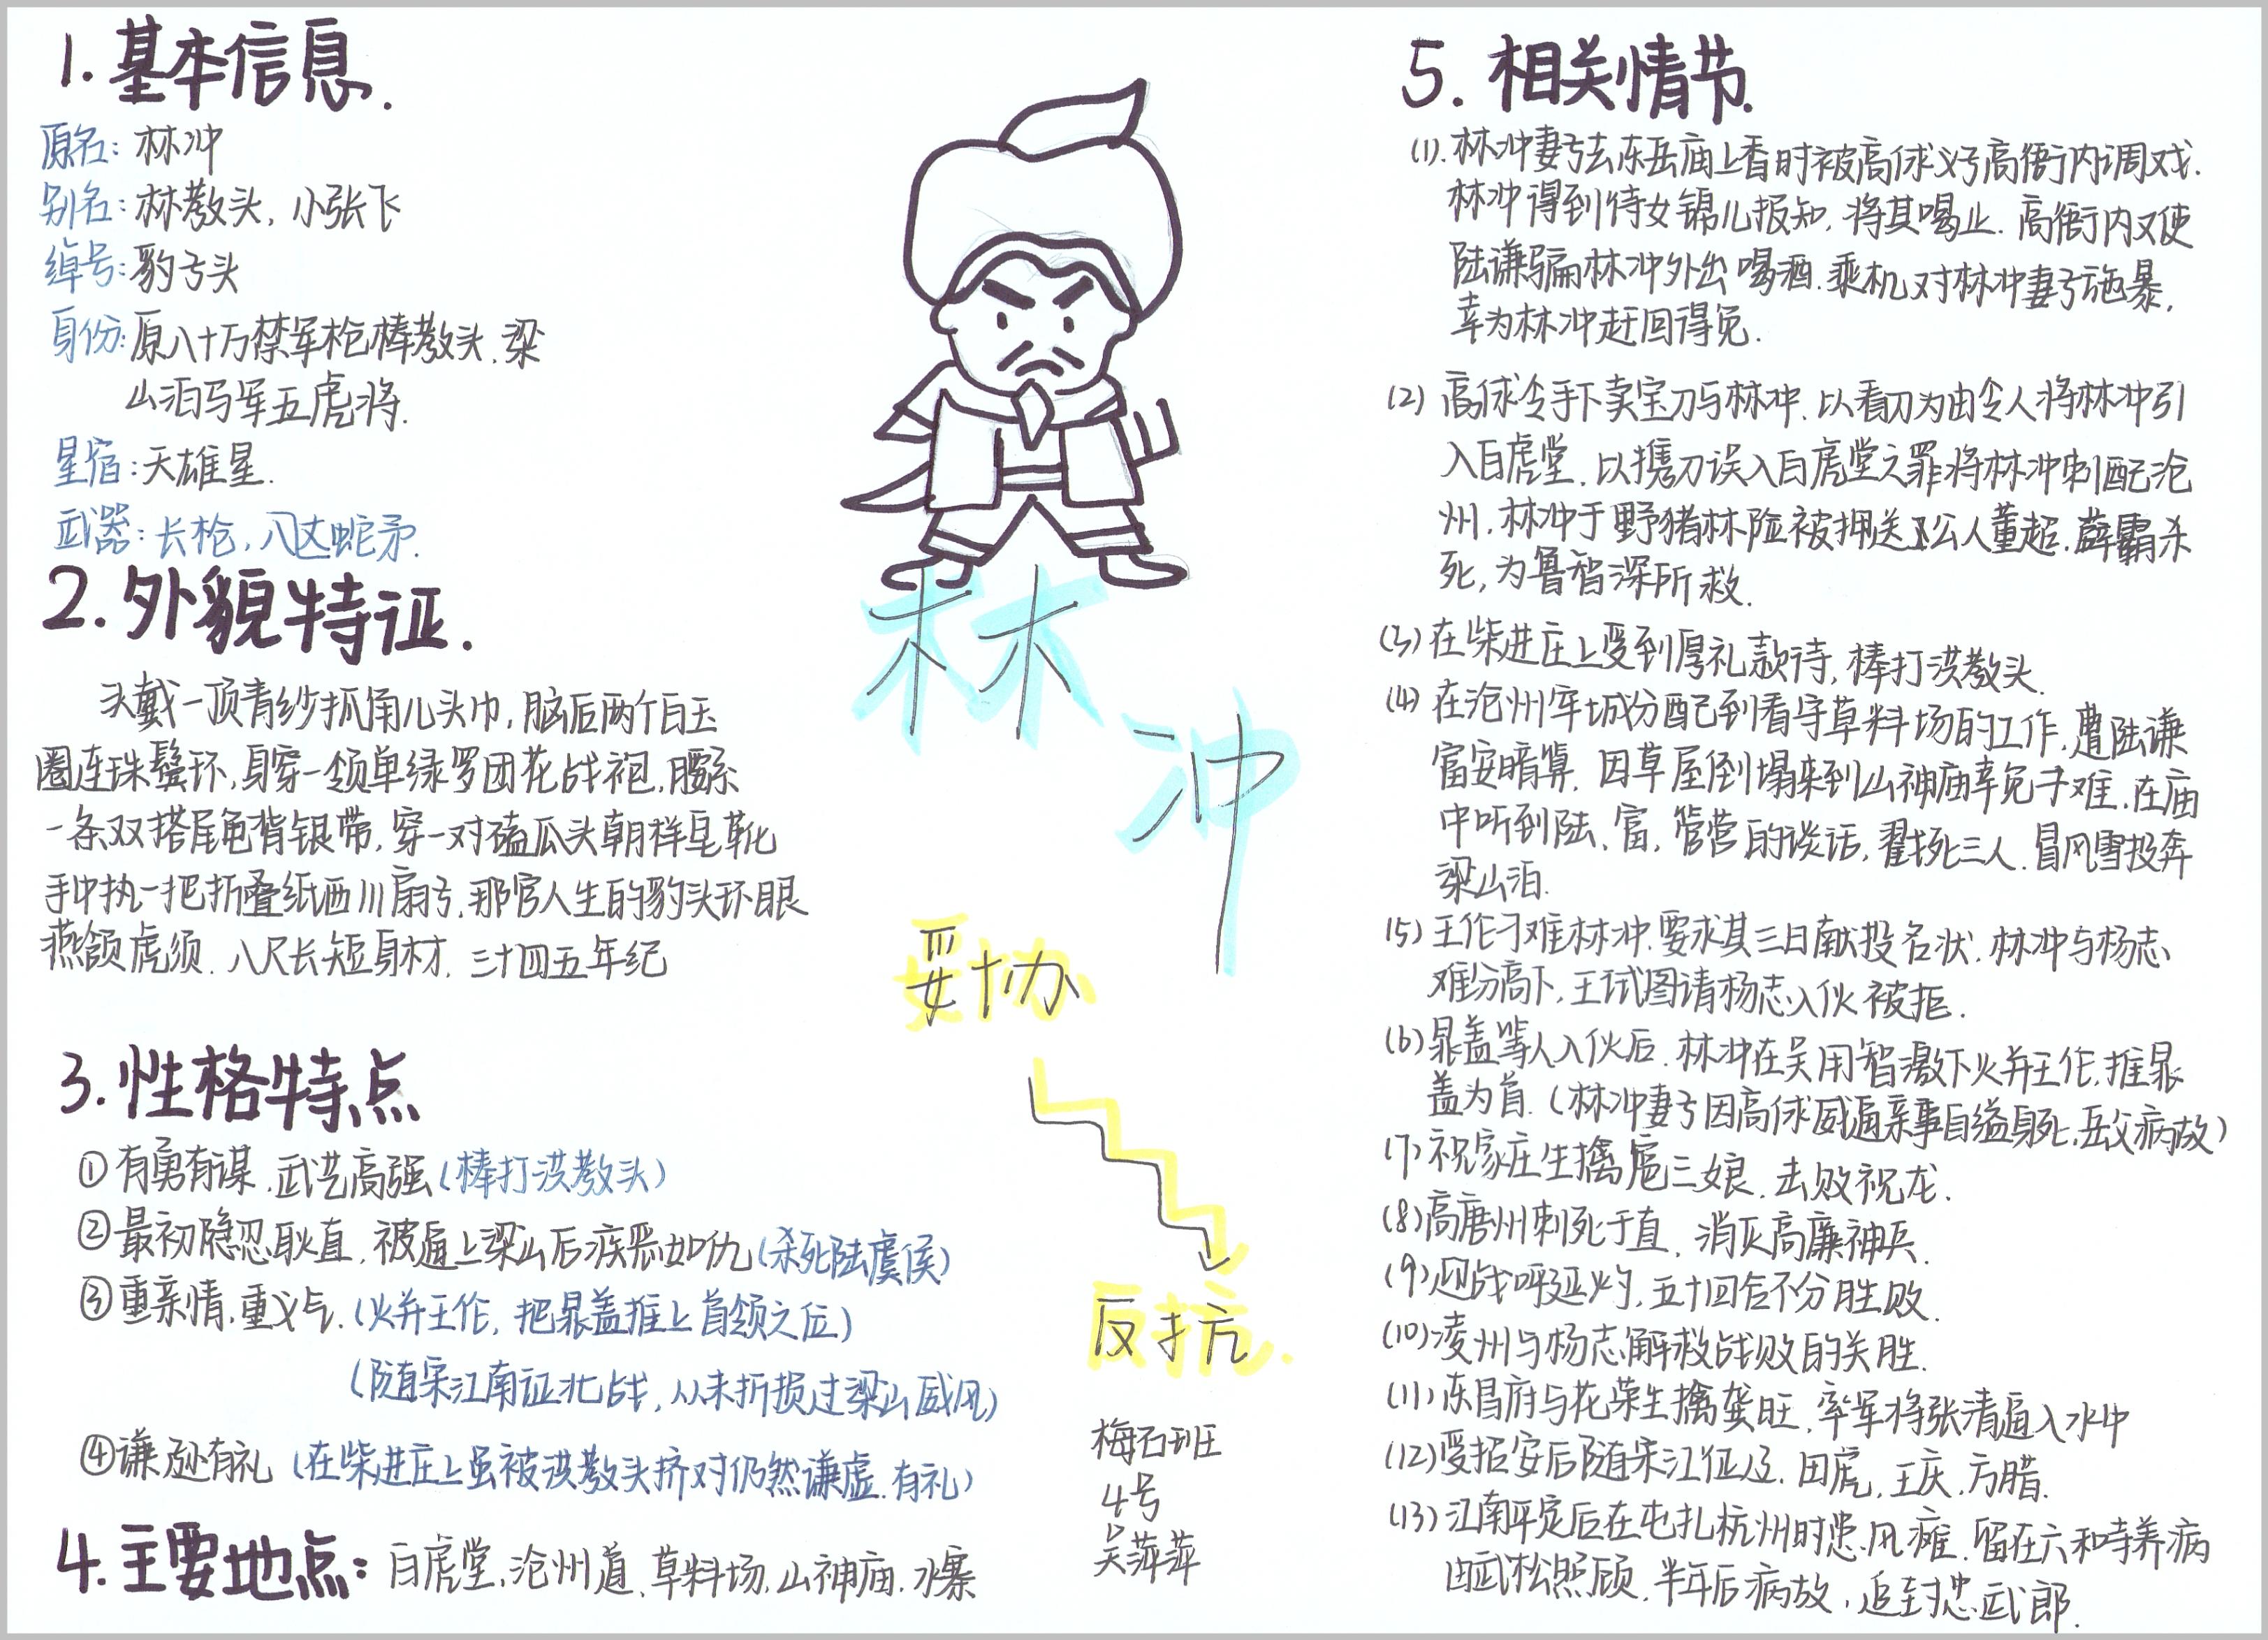 1. 基本信息.
原名: 林冲
别名: 林教头, 小张飞
绰号: 豹子头
身份: 原八十万禁军枪棒教头. 梁
山泊马军五虎将.
星宿: 天雄星.
武器: 长枪, 八丈蛇矛.
2. 外貌特征.
头戴一顶青纱抓角儿头巾, 脑后两个白玉
圈连珠鬓环, 身穿一领单绿罗团花战袍, 腰系
一条双搭尾龟背银带, 穿一对磕瓜头朝样皂靴
手中执一把折叠纸西川扇子. 那官人生的豹头环眼
燕颔虎须. 八尺长短身材. 三十四五年纪
3. 性格特点
①有勇有谋. 武艺高强(棒打洪教头)
②最初隐忍耿直. 被逼上梁山后疾恶如仇(杀死陆虞侯)
③重亲情. 重义气. (火并王伦, 把晁盖推上首领之位)
(随宋江南证北战, 从未折损过梁山威风)
④谦逊有礼 (在柴进庄上虽被洪教头挤对仍然谦虚. 有礼)
4. 主要地点: 白虎堂. 沧州道. 草料场. 山神庙. 水寨
林冲
妥协
反抗.
梅石班
4号
吴萍萍
5. 相关情节.
(1). 林冲妻子去东岳庙上香时被高俅义子高衙内调戏.
林冲得到侍女锦儿报知, 将其喝止. 高衙内又使
陆谦骗林冲外出喝酒. 乘机对林冲妻子施暴,
幸为林冲赶回得免.
(2) 高俅令手下卖宝刀与林冲. 以看刀为由令人将林冲引
入白虎堂. 以携刀误入白虎堂之罪将林冲刺配沧
州. 林冲于野猪林险被押送公人董超. 薛霸杀
死, 为鲁智深所救.
(3) 在柴进庄上受到厚礼款待, 棒打洪教头.
(4) 在沧州牢城分配到看守草料场的工作. 遭陆谦
富安暗算. 因草屋倒塌来到山神庙幸免于难. 在庙
中听到陆、富, 管营的谈话, 戳死三人. 冒风雪投奔
梁山泊.
(5) 王伦刁难林冲. 要求其三日献投名状. 林冲与杨志
难分高下, 王试图请杨志入伙被拒.
(6) 晁盖等人入伙后. 林冲在吴用智激下火并王伦. 推晁
盖为首. (林冲妻子因高俅威逼亲事自缢身死. 岳父病故)
(7) 祝家庄生擒扈三娘. 击败祝龙.
(8) 高唐州刺死于直. 消灭高廉神兵.
(9) 迎战呼延灼, 五十回合不分胜败.
(10) 凌州与杨志解救战败的关胜.
(11) 东昌府与花荣生擒龚旺. 率军将张清逼入水中
(12) 受招安后随宋江征辽. 田虎, 王庆. 方腊.
(13) 江南平定后在屯扎杭州时患风瘫. 留在六和寺养病
由武松照顾. 半年后病故, 追封忠武郎.